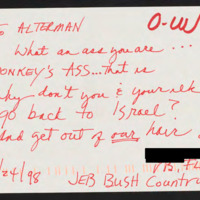 O ALTERMAN
What an ass you are ...
ONKEY'S ASS... that is
hy don't you & your ilk
go back to Israel?
And get out of our hair
/24/98
VB, FL
JEB BUSH Country